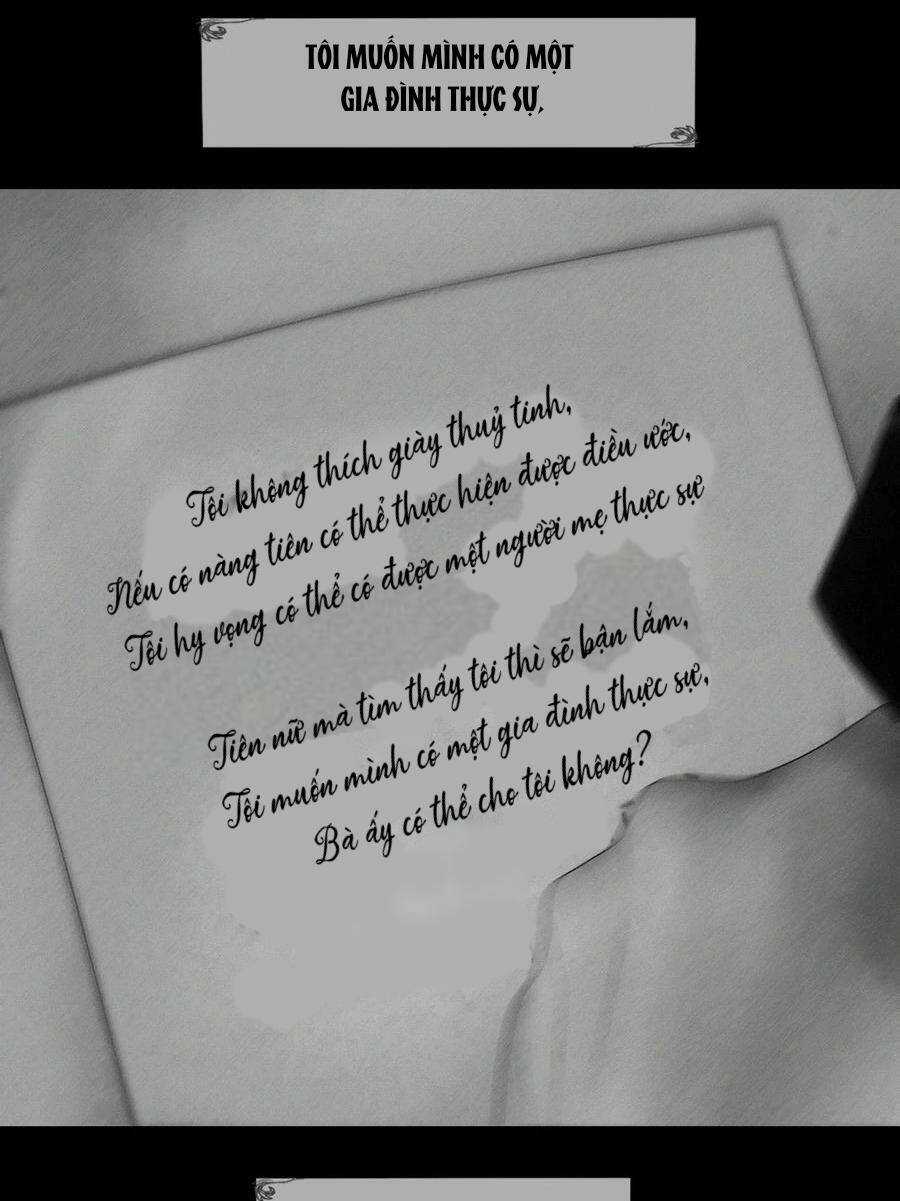 TÔI MUỐN MÌNH CÓ MỘT
GIA ĐÌNH THỰC SỰ,
Tôi không thích giày thuỷ tinh,
Nếu có nàng tiên có thể thực hiện được điều ước,
Tôi hy vọng có thể có được một người mẹ thực sự
Tiên nữ mà tìm thấy tôi thì sẽ bận lắm,
Tôi muốn mình có một gia đình thực sự,
Bà ấy có thể cho tôi không?